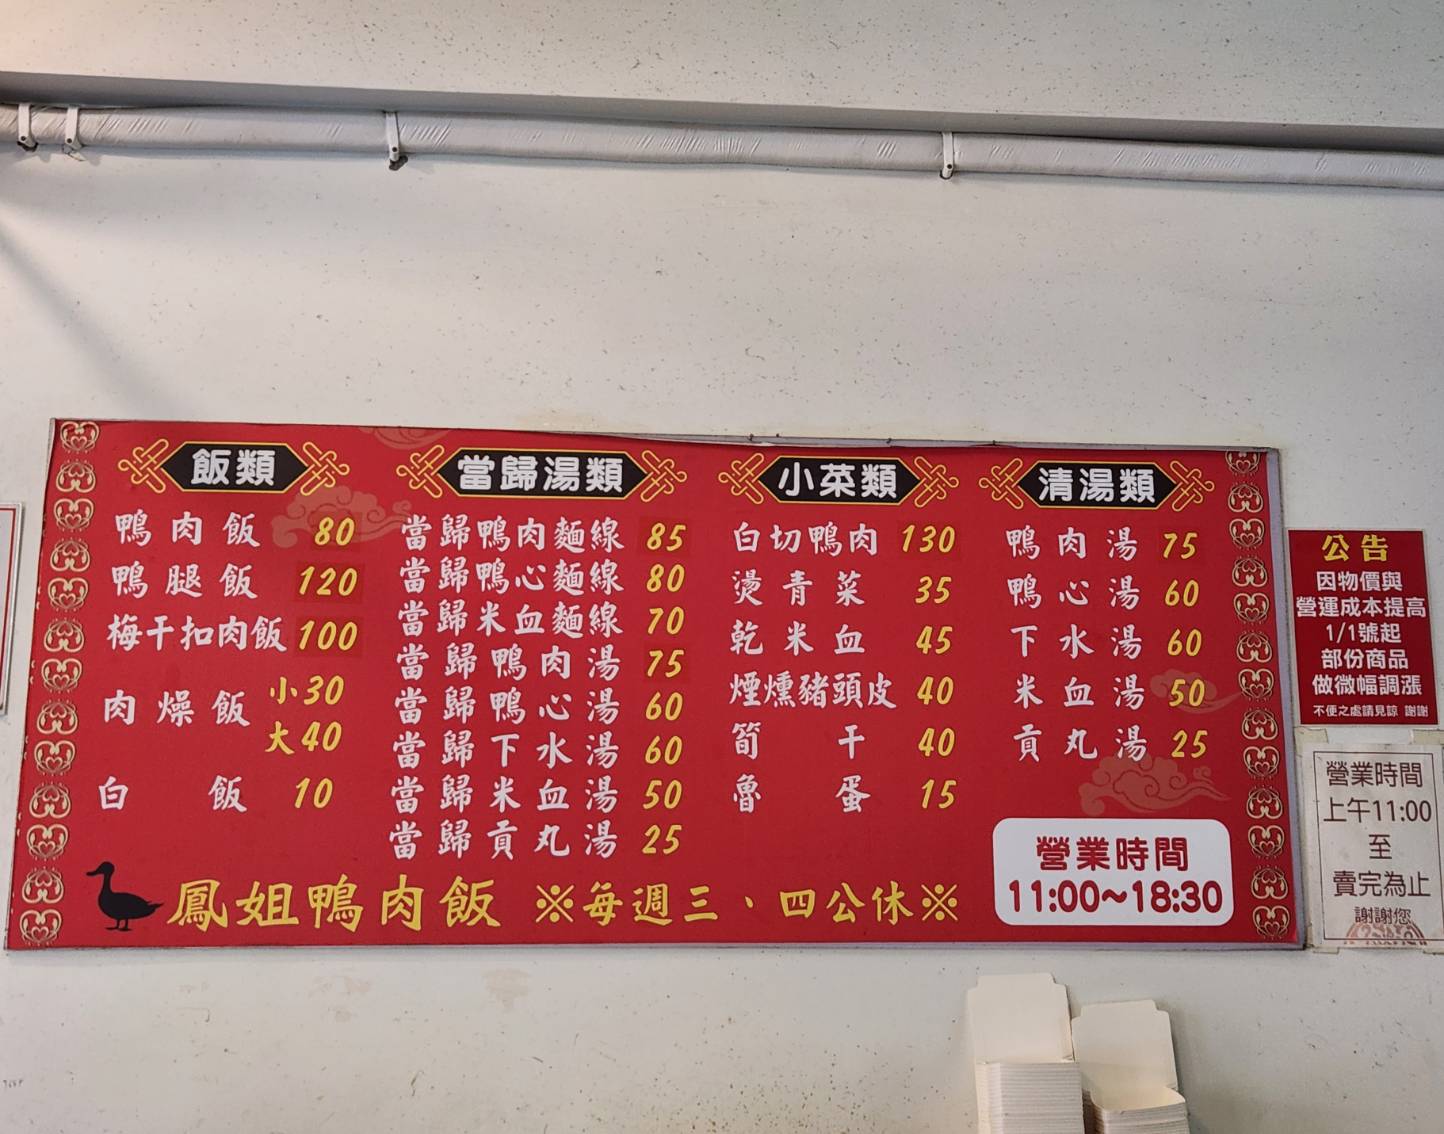 飯類
鴨肉飯 80
鴨腿飯 120
梅干扣肉飯 100
肉燥飯 小30
大40
白飯 10
當歸湯類
當歸鴨肉麵線 85
當歸鴨心麵線 80
當歸米血麵線 70
當歸鴨肉湯 75
當歸鴨心湯 60
當歸下水湯 60
當歸米血湯 50
當歸貢丸湯 25
小菜類
白切鴨肉 130
燙青菜 35
乾米血 45
煙燻豬頭皮 40
筍干 40
魯蛋 15
清湯類
鴨肉湯 75
鴨心湯 60
下水湯 60
米血湯 50
貢丸湯 25
鳳姐鴨肉飯 ※每週三、四公休※
營業時間
11:00~18:30
公告
因物價與
營運成本提高
1/1號起
部份商品
做微幅調漲
不便之處請見諒 謝謝
營業時間
上午11:00
至
賣完為止
謝謝您